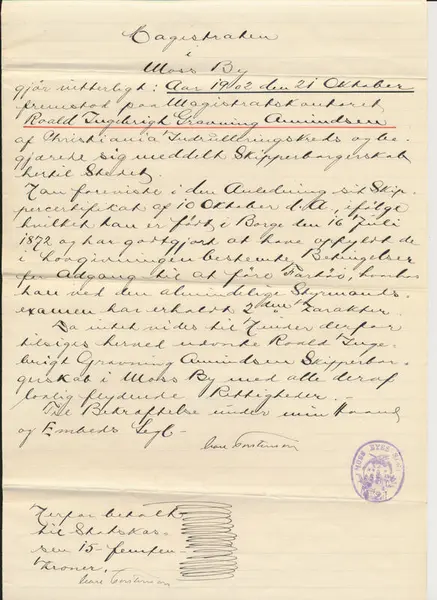 Magistraten
i
Moss By
gjør vitterligt: Aar 1902 den 21 Oktober
fremstod paa Magistratskontoret
Roald Engebrigt Gravning Amundsen
af Christiania Indrulleringskreds og be-
gjærede sig meddelt Skipperborgerskab
hertil Stedet.
Han foreviste i den Anledning sit Skip-
percertifikat af 10 Oktober d.A., ifølge
hvilket han er født i Borge den 16 Juli
1872 og har godtgjort at have opfyldt de
i Lovgivningen bestemte Betingelser
for Adgang til at føre Fartøi, hvorhos
han ved den almindelige Styrmands-
examen har erholdt 2den Karakter.
Da intet vides til Hinder derfor
tilsiges herved udvonte Roald Enge-
brigt Gravning Amundsen Skipperbor-
gerskab i Moss By med alle deraf
lovlig flydende Rettigheder.-
Til Bekræftelse under min Haand
og Embeds Segl-
MOSS BYES SEGL
Herfor betalt
til Statskas-
sen 15- femten-
Kroner.-